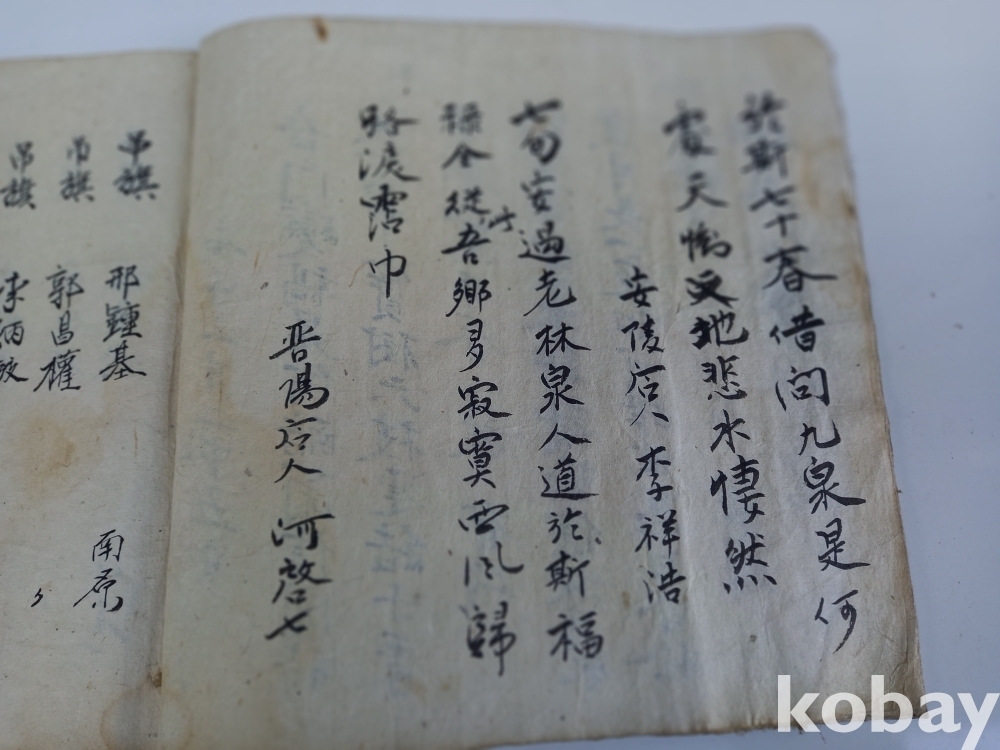 於斯七十春借問九泉是何
處天慟又地悲水悽然
安陵后人李祥浩
七旬安過老林泉人道於斯福
祿全從此吾鄉多寂寞西風歸
路淚霑巾
晋陽后人河啓七
吊旗 邢鍾基 南原
吊旗 郭昌權 〃
吊旗 李炳
kobay